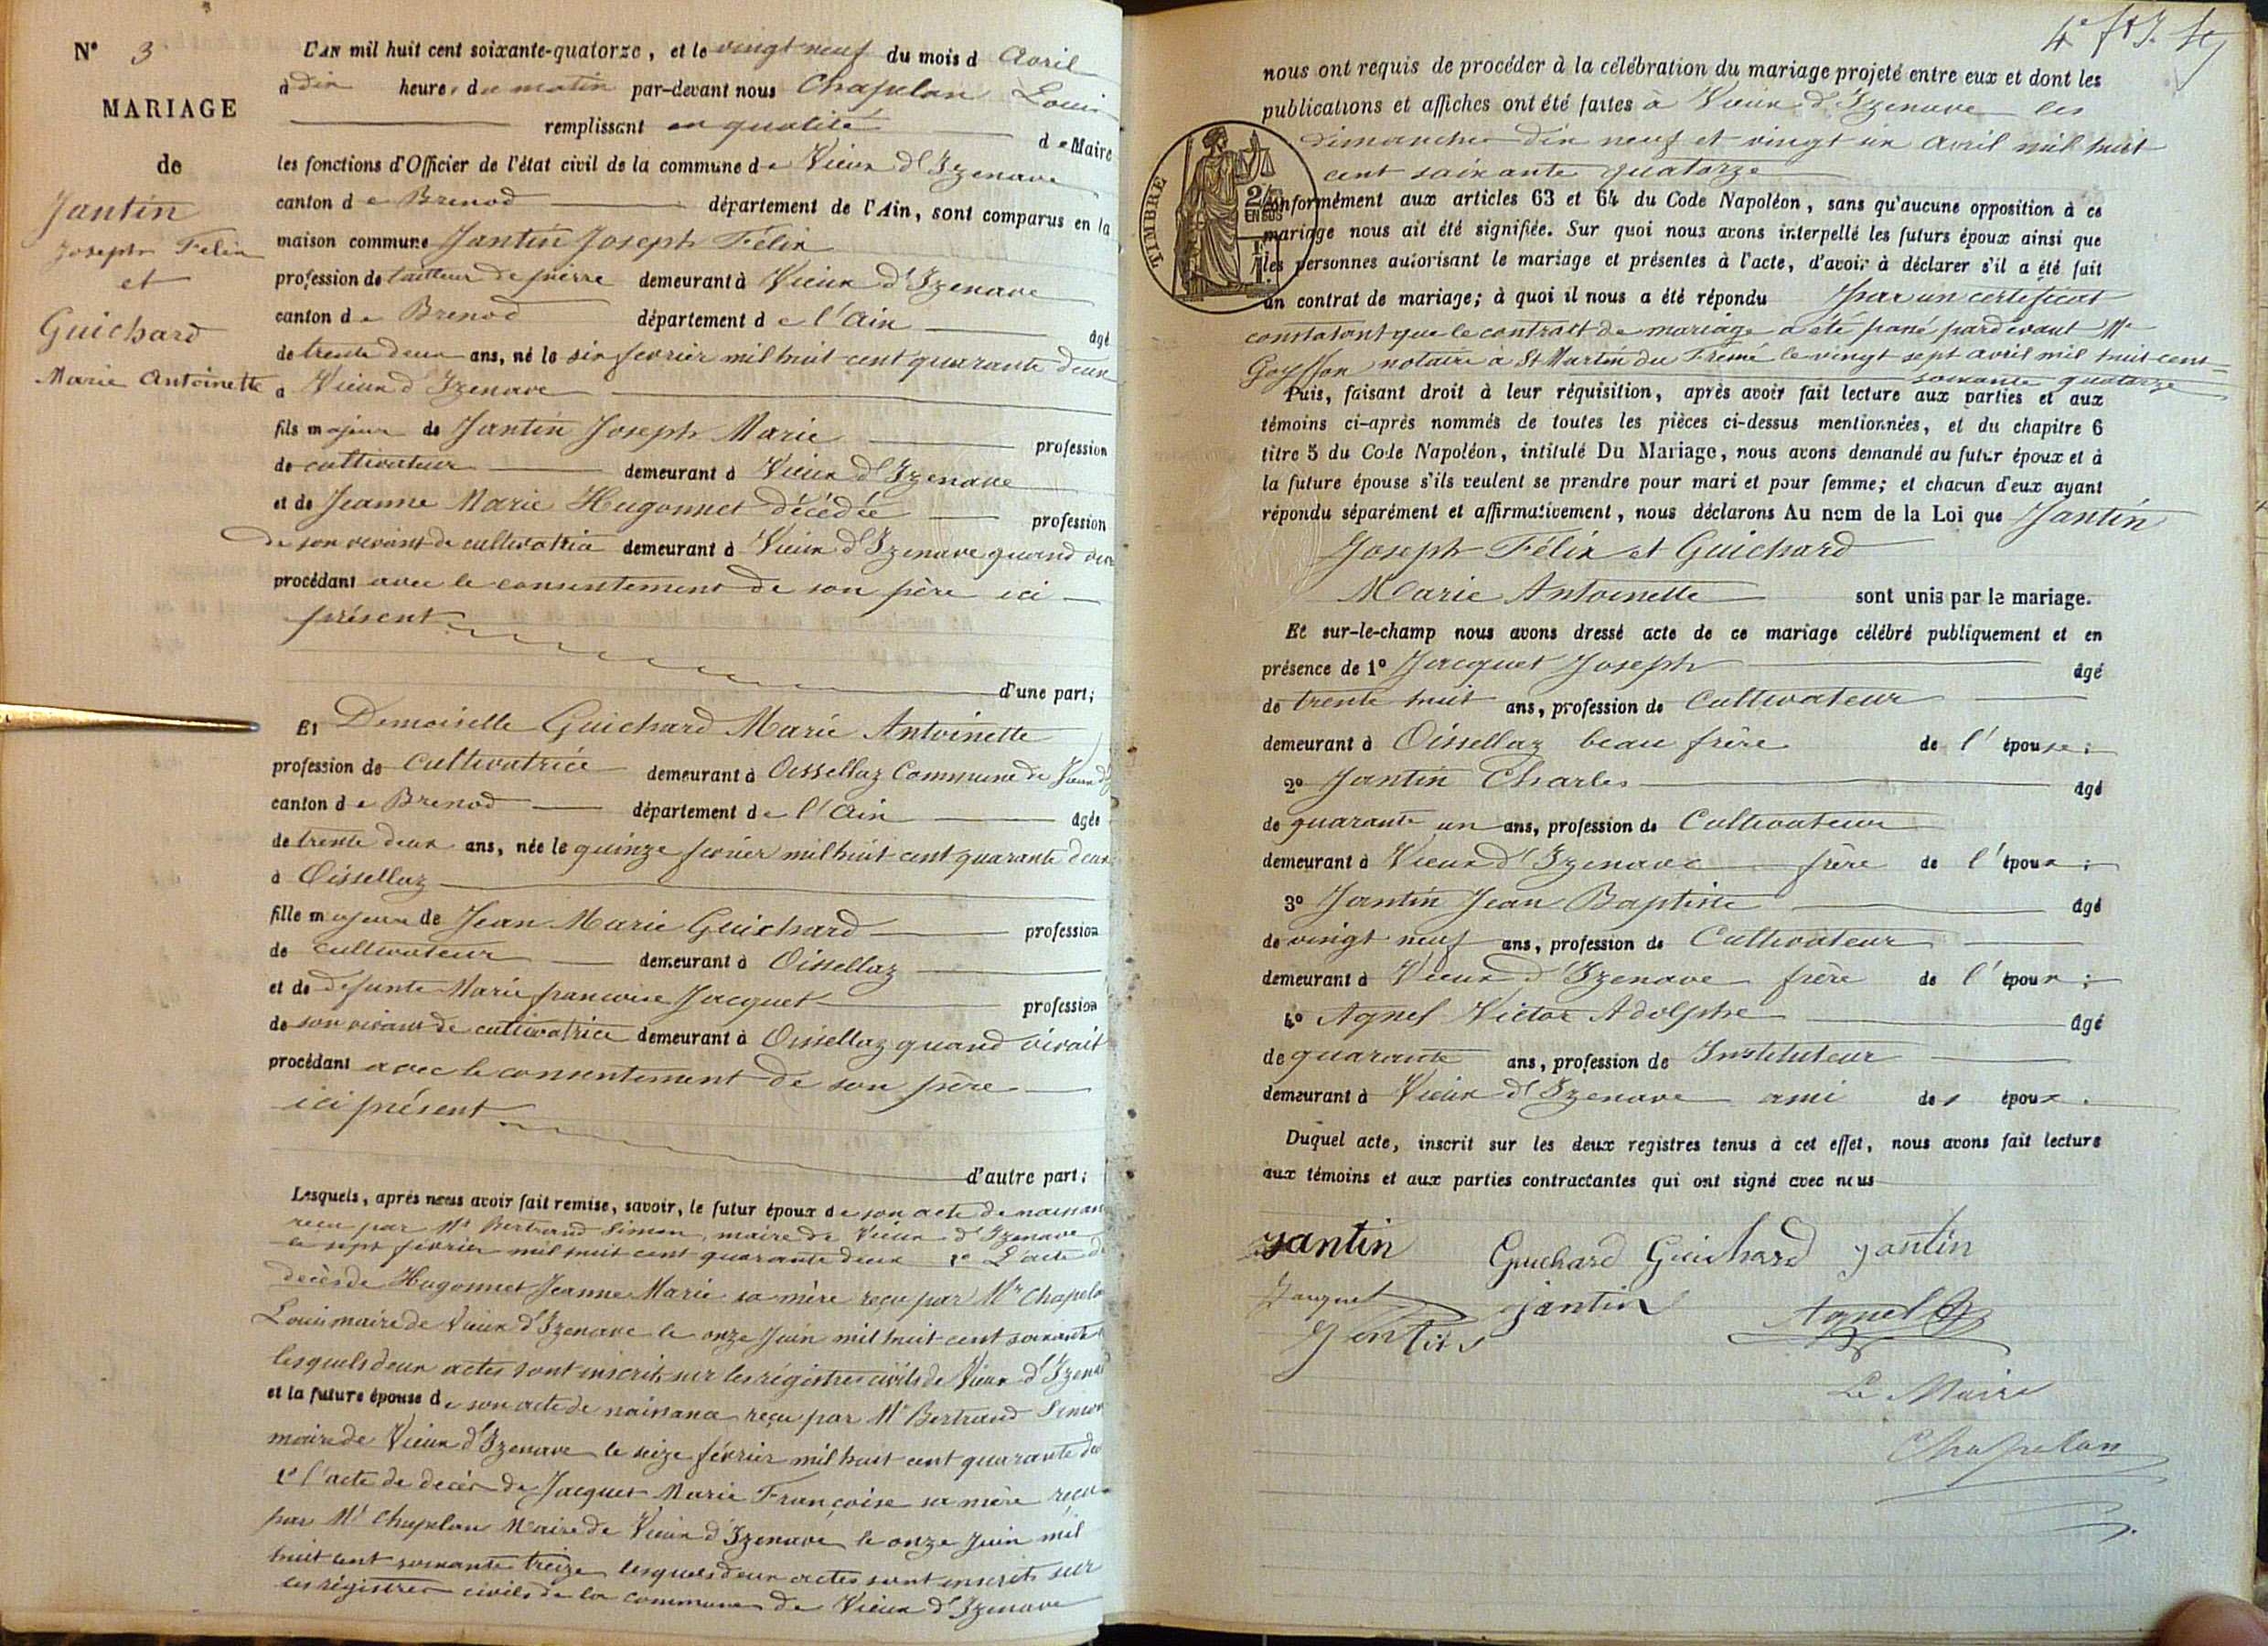 N° 3
MARIAGE
de
Jantin
Joseph Félix
et
Guichard
Marie Antoinette
L'AN mil huit cent soixante-quatorze, et le vingt neuf du mois d Avril
à dix heures du matin par-devant nous Chapelan Louis
remplissant en qualité de Maire
les fonctions d'Officier de l'état civil de la commune de Vieux d'Izenave
canton de Brenod département de l'Ain, sont comparus en la
maison commune Jantin Joseph Félix
profession de tailleur de pierre demeurant à Vieux d'Izenave
canton de Brenod département de l'Ain âgé
de trente deux ans, né le six fevrier mil huit cent quarante deux
a Vieux d'Izenave
fils majeur de Jantin Joseph Marie profession
de cultivateur demeurant à Vieux d'Izenave
et de Jeanne Marie Hugonnet décédée profession
de son vivant de cultivatrice demeurant à Vieux d'Izenave quand
procédant avec le consentement de son père ici
présent
d'une part;
Et Demoiselle Guichard Marie Antoinette
profession de Cultivatrice demeurant à Oissellaz Commune de Vieux d'
canton de Brenod département de l'Ain âgée
de trente deux ans, née le quinze fevrier mil huit cent quarante deux
à Oissellaz
fille majeure de Jean Marie Guichard profession
de cultivateur demeurant à Oissellaz
et de défunte Marie francoise Jacquet profession
de son vivant de cultivatrice demeurant à Oissellaz quand vivait
procédant avec le consentement de son père
ici présent
d'autre part;
Lesquels, après nous avoir fait remise, savoir, le futur époux de son acte de naissan
reçu par Mr Bertrand Simon, maire de Vieux d'Izenave
le sept février mil huit cent quarante deux 2° L'acte de
décès de Hugonnet Jeanne Marie sa mère reçu par Mr Chapela
Louis maire de Vieux d'Izenave le onze Juin mil huit cent soixante
lesquels deux actes sont inscrits sur les régistres civils de Vieux d'Izenave
et la future épouse de son acte de naissance reçu par Mr Bertrand Simon
maire de Vieux d'Izenave le seize février mil huit cent quarante deu
2° l'acte de décès de Jacquet Marie Françoise sa mère reçu
par Mr Chapelan Maire de Vieux d'Izenave le onze Juin mil
huit cent soixante treize lesquels deux actes sont inscrits sur
les régistres civils de la commune de Vieux d'Izenave
nous ont requis de procéder à la célébration du mariage projeté entre eux et dont les
publications et affiches ont été faites à Vieux d'Izenave les
dimanches dix neuf et vingt six avril mil huit
cent soixante quatorze
TIMBRE
2/10 EN SUS
conformément aux articles 63 et 64 du Code Napoléon, sans qu'aucune opposition à ce
mariage nous ait été signifiée. Sur quoi nous avons interpellé les futurs époux ainsi que
les personnes autorisant le mariage et présentes à l'acte, d'avoir à déclarer s'il a été fait
un contrat de mariage; à quoi il nous a été répondu par un certificat
constatant que le contrat de mariage a été passé pardevant Me
Goyffon notaire à St Martin du Fresne le vingt sept avril mil huit cent
soixante quatorze
Puis, faisant droit à leur réquisition, après avoir fait lecture aux parties et aux
témoins ci-après nommés de toutes les pièces ci-dessus mentionnées, et du chapitre 6
titre 5 du Code Napoléon, intitulé Du Mariage, nous avons demandé au futur époux et à
la future épouse s'ils veulent se prendre pour mari et pour femme; et chacun d'eux ayant
répondu séparément et affirmativement, nous déclarons Au nom de la Loi que Jantin
Joseph Félix et Guichard
Marie Antoinette sont unis par le mariage.
Et sur-le-champ nous avons dressé acte de ce mariage célébré publiquement et en
présence de 1° Jacquet Joseph âgé
de trente huit ans, profession de Cultivateur
demeurant à Oissellaz beau frère de l'épouse;
2° Jantin Charles âgé
de quarante un ans, profession de Cultivateur
demeurant à Vieux d'Izenave frère de l'époux;
3° Jantin Jean Baptiste âgé
de vingt neuf ans, profession de Cultivateur
demeurant à Vieux d'Izenave frère de l'époux;
4° Agnel Victor Adolphe âgé
de quarante ans, profession de Instituteur
demeurant à Vieux d'Izenave ami des époux.
Duquel acte, inscrit sur les deux registres tenus à cet effet, nous avons fait lecture
aux témoins et aux parties contractantes qui ont signé avec nous
Jantin Guichard Guichard Jantin
Jacquet Jantin Agnel
Jantin
Le Maire
Chapelan